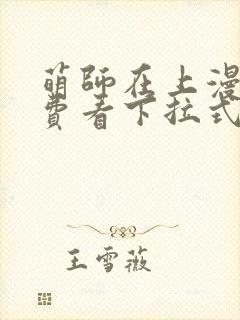 萌師在上漫
費看下拉式
王雪薇